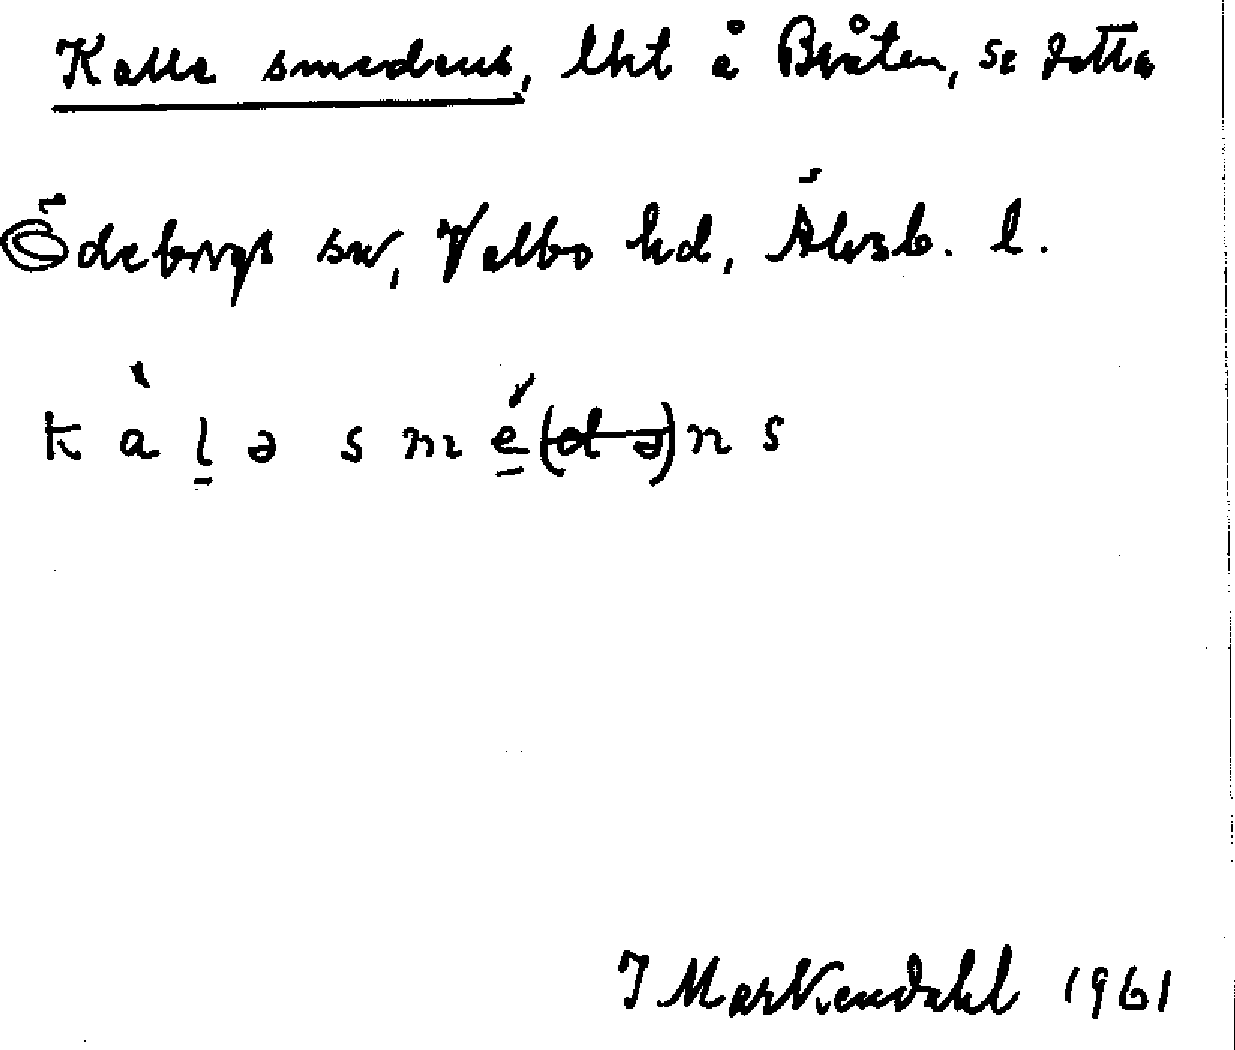 Kalle smedens, lht å Bråten, se detta
Ödeborgs sn, Valbo hd, Älvsb. l.
k à l̠ ə s m é̠ (d ə) n s
J Markendahl 1961